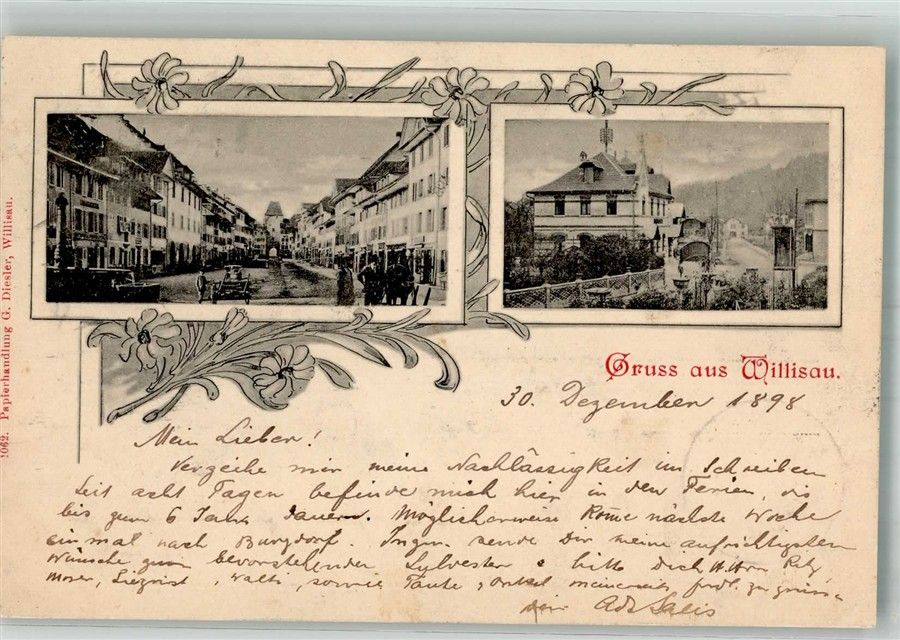 Gruss aus Willisau.
30. Dezember 1898
Mein Lieber!
Verzeihe mir meine Nachlässigkeit im Schreiben
Seit acht Tagen befinde mich hier in den Ferien, die
bis zum 6 Jan. dauern. Möglicherweise komme nächste Woche
einmal nach Burgdorf. sende Dir meine aufrichtigsten
Wünsche zum bevorstehenden Sylvester & bitte Dich
Moser, Siegrist, Walti, sowie Tante & Onkel meinerseits frdl. zu grüssen
dein
1062. Papierhandlung G. Diesler, Willisau.